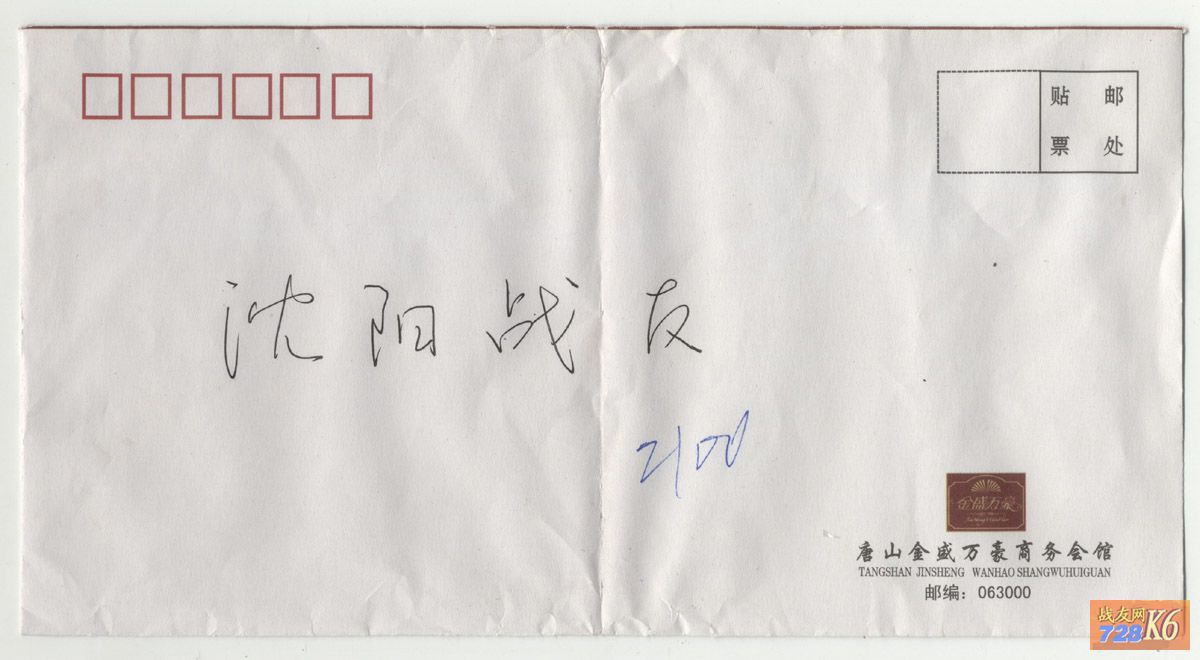 贴 邮
票 处
沈阳战友
2100
金盛万豪
唐山金盛万豪商务会馆
TANGSHAN JINSHENG WANHAO SHANGWUHUIGUAN
邮编：063000
战友网
728 K6